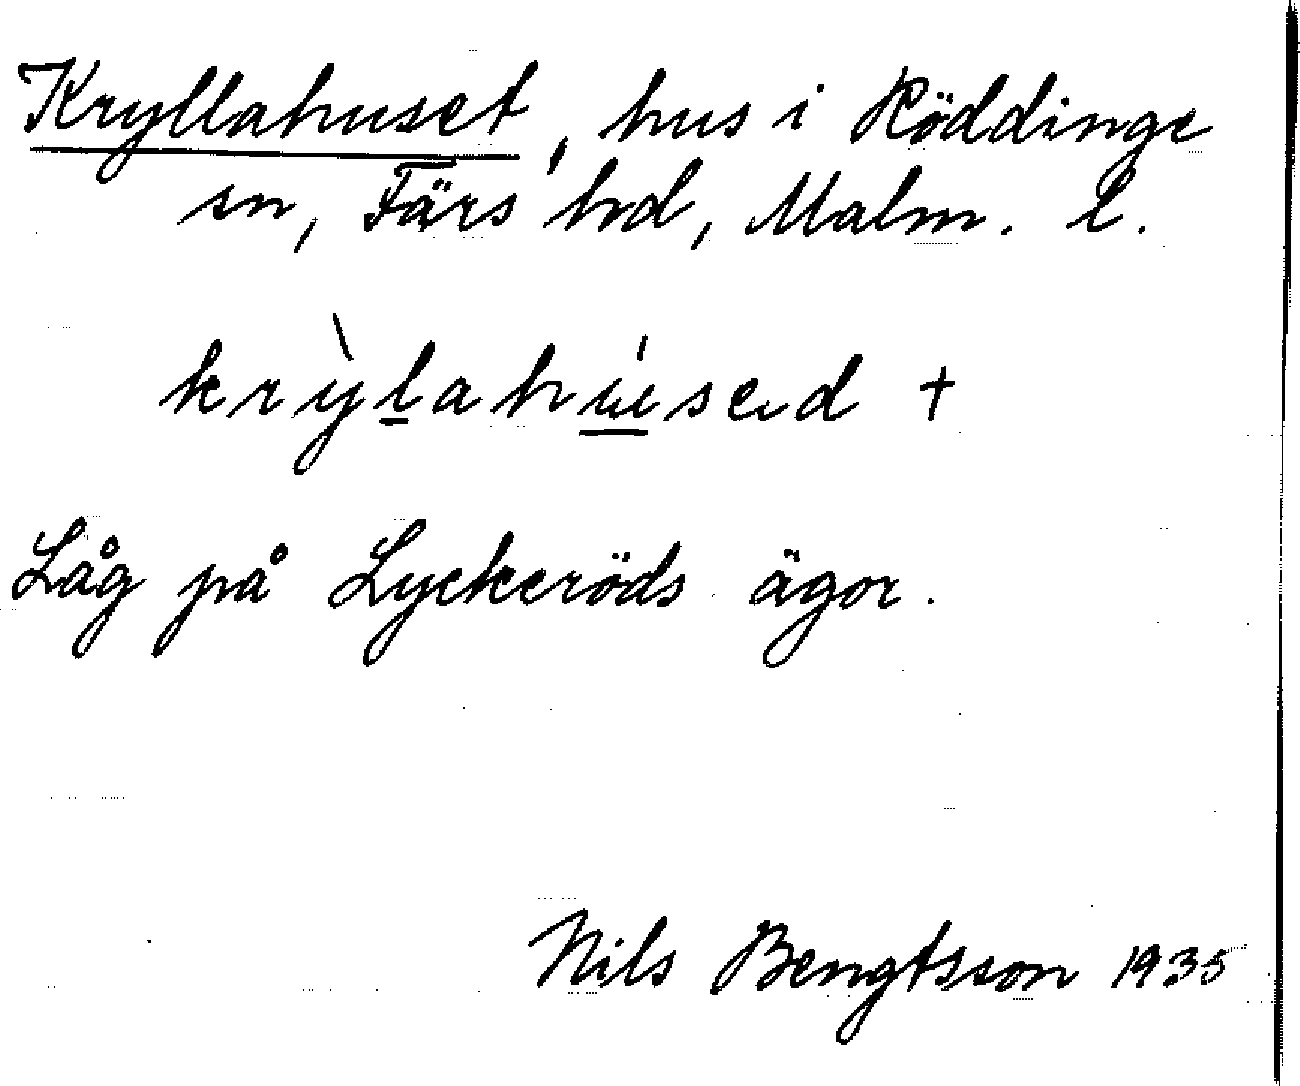 Kryllahuset, hus i Röddinge
sn, Färs hd, Malm. l.
krỳlahúised +
Låg på Lyckeröds ägor.
Nils Bengtsson 1935